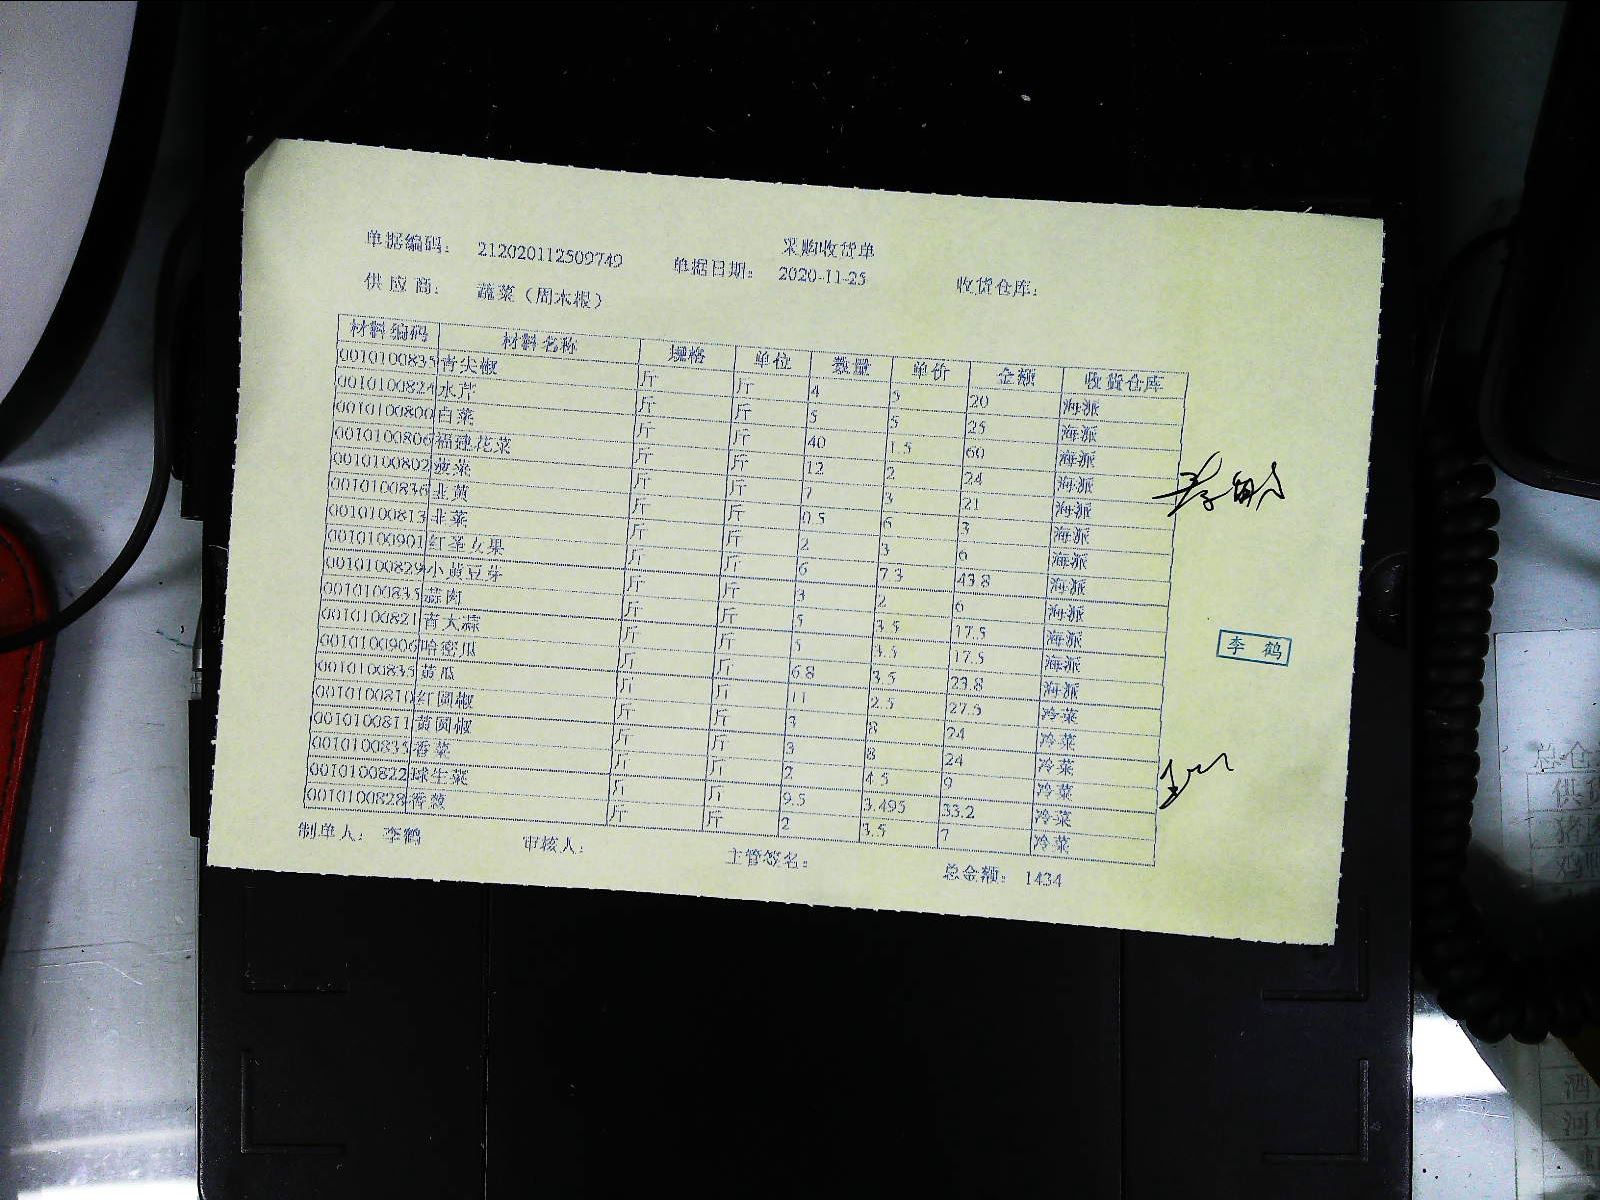 采购收货单
单据编码： 212020112509749 单据日期： 2020-11-25 收货仓库：
供应商： 蔬菜（周本根）
材料编码 材料名称 规格 单位 数量 单价 金额 收货仓库
0010100835 青尖椒 斤 斤 4 5 20 海派
0010100824 水芹 斤 斤 5 5 25 海派
0010100800 白菜 斤 斤 40 1.5 60 海派
0010100806 福建花菜 斤 斤 12 2 24 海派
0010100802 菠菜 斤 斤 7 3 21 海派
0010100836 韭黄 斤 斤 0.5 6 3 海派
0010100813 韭菜 斤 斤 2 3 6 海派
0010100901 红圣女果 斤 斤 6 7.3 43.8 海派
0010100829 小黄豆芽 斤 斤 3 2 6 海派
0010100835 蒜肉 斤 斤 5 3.5 17.5 海派
0010100821 青大蒜 斤 斤 5 3.5 17.5 海派
0010100906 哈密瓜 斤 斤 6.8 3.5 23.8 海派
0010100835 黄瓜 斤 斤 11 2.5 27.5 冷菜
0010100810 红圆椒 斤 斤 3 8 24 冷菜
0010100811 黄圆椒 斤 斤 3 8 24 冷菜
0010100835 香菜 斤 斤 2 4.5 9 冷菜
0010100822 球生菜 斤 斤 9.5 3.495 33.2 冷菜
0010100828 香葱 斤 斤 2 3.5 7 冷菜
制单人： 李鹤 审核人： 主管签名： 总金额： 1434
李鹤